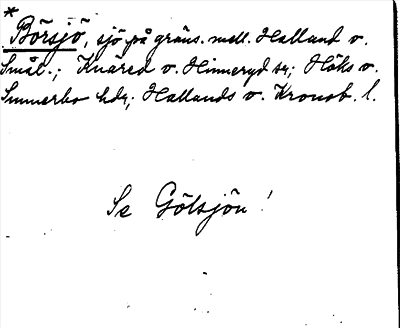 * Börsjö, sjö på gräns. mell. Halland o.
Smål.; Knäred o. Hinneryd sr; Höks o.
Sunnerbo hdr; Hallands o. Kronob. l.
Se Götsjön!